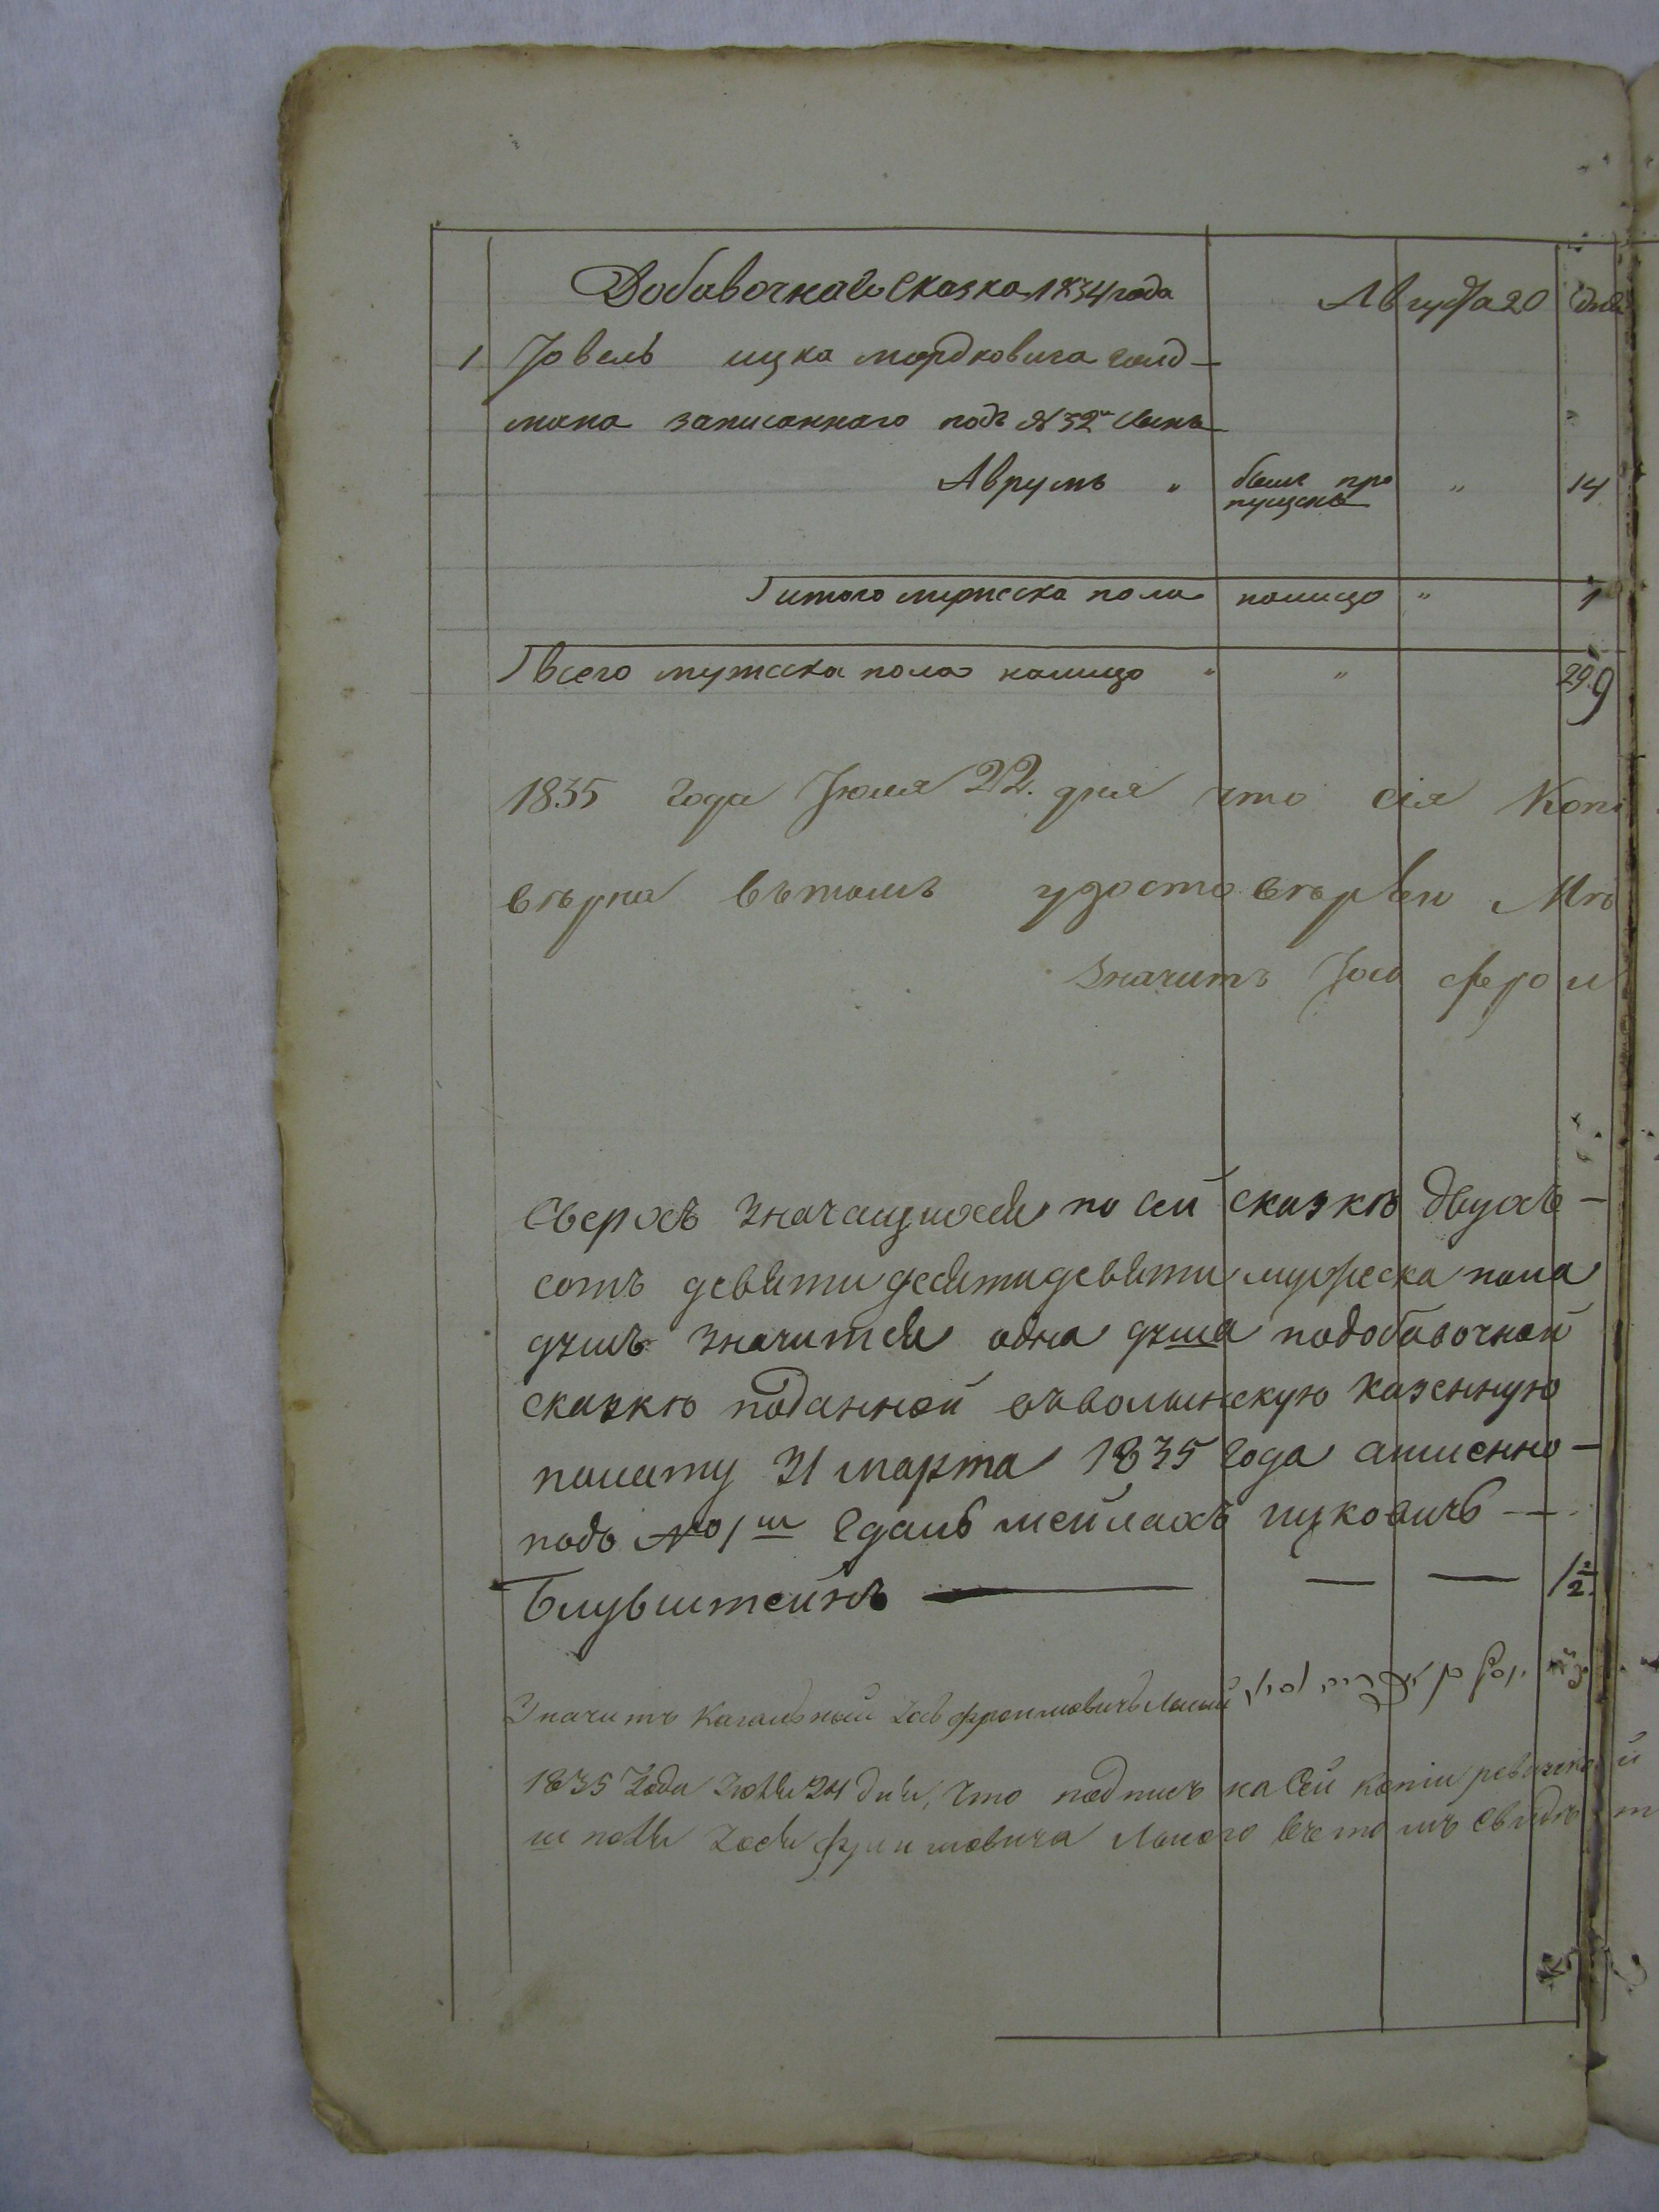 Добавочная Сказка 1834 года Августа 20 дня
1 Іовель ицка мордковича голд-
мана записаннаго подъ № 32м Сынъ
Аврумъ " былъ про пущенъ " 14
итого мужеска пола налицо " 1
всего мужеска пола налицо " " 299
1835 года Іюля 22. дня что сія Копі
вѣрна вътомъ удостовѣрѣн
Значитъ
Сверхъ Значащихся по сей сказкѣ двухъ-
сотъ девяти десяти девяти мужеска пола
душъ значится одна душа подобавочной
сказкѣ поданной въволынскую казенную
палату 31 марта 1835 года аименно-
подъ №o 1м Едаль мейлахъ ицковичъ —
Блувштейнъ — — — 1 2/2
Значитъ Кагальный
1835 Года 24 дня, Что подписъ на Сей копіи ревизской
вчетомъ свидѣт